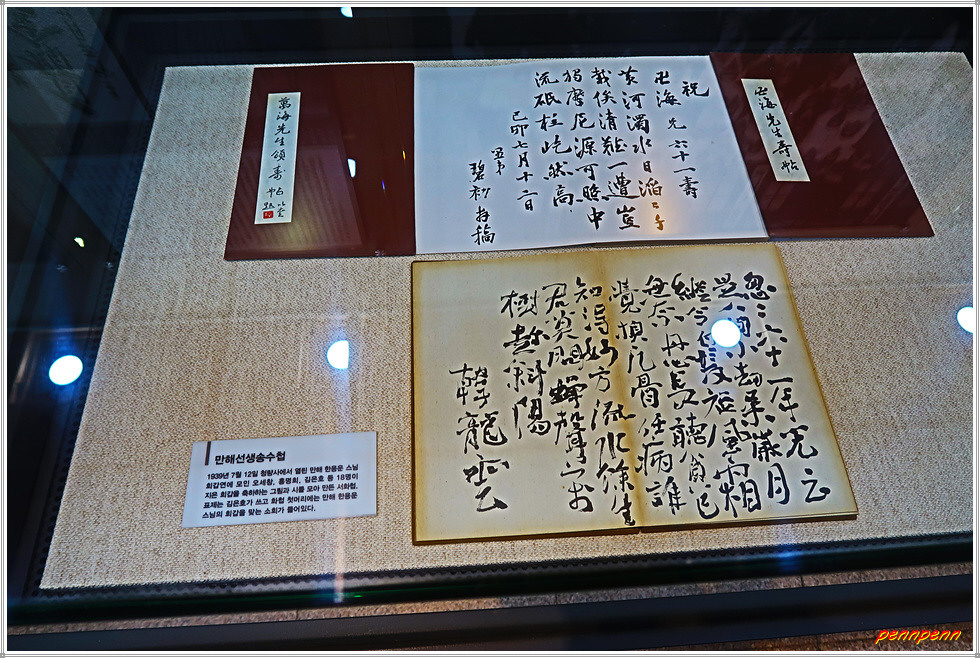 萬海先生頌壽帖
祝
卍海兄六十一壽
黃河濁水日滔〻千
載俟清難一遭豈
獨摩尼源可照中
流砥柱屹然高
己卯七月十二日
卍海先生壽帖
忽〻六十一年光云
是人間小劫桑歲月
縱令白髮短風霜
無奈丹心長聽貧已
覺換凡骨任病誰
知得妙方流水餘生
君莫問蟬聲萬
樹趁斜陽
韓龍雲
만해선생송수첩
1939년 7월 12일 청량사에서 열린 만해 한용운 스님
회갑연에 모인 오세창, 홍명희, 김은호 등 18명이
지은 회갑을 축하하는 그림과 시를 모아 만든 서화첩.
표제는 김은호가 쓰고 화첩 첫머리에는 만해 한용운
스님의 회갑을 맞는 소회가 들어있다.
pennpenn